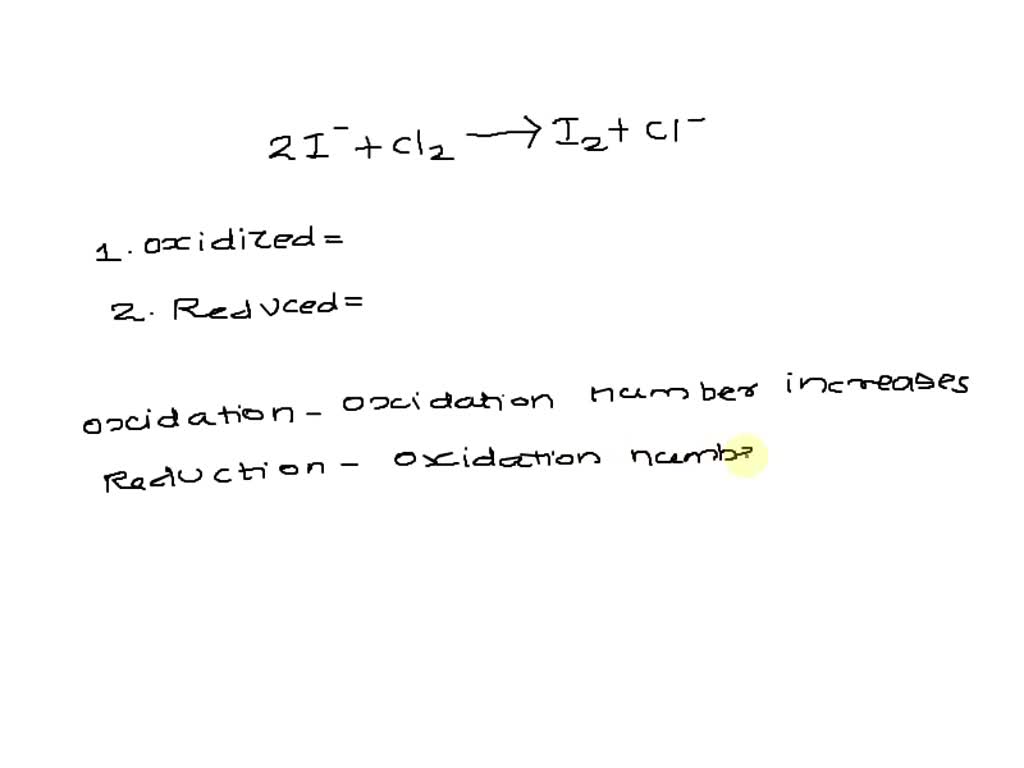 2I⁻ + Cl₂ → I₂ + Cl⁻
1. Oxidized =
2. Reduced =
Oxidation - Oxidation number increases
Reduction - Oxidation numbe